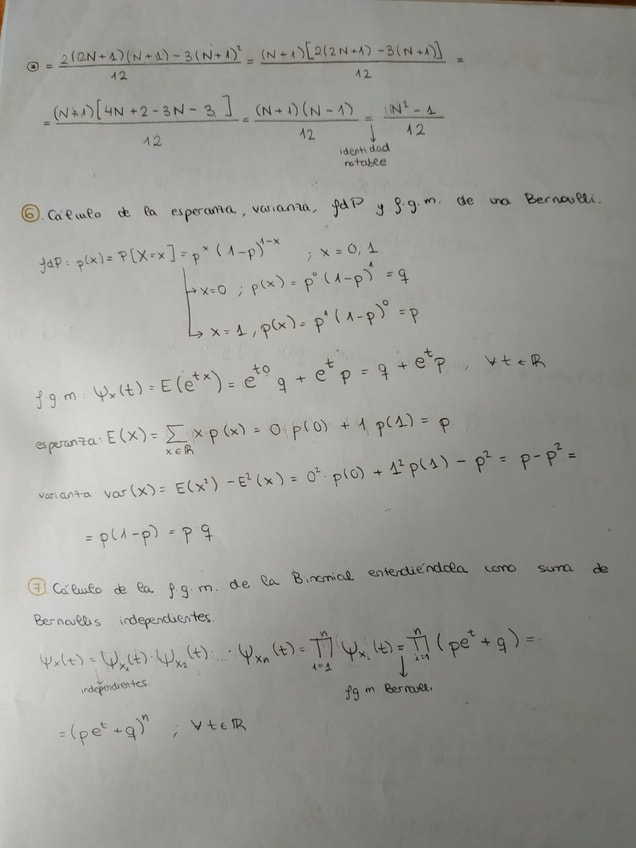 ⊛ = 2(2N+1)(N+1) - 3(N+1)² / 12 = (N+1)[2(2N+1) - 3(N+1)] / 12 =
= (N+1)[4N+2-3N-3] / 12 = (N+1)(N-1) / 12 = N²-1 / 12
identidad
notable
⑥. Cálculo de la esperanza, varianza, fdP y f.g.m. de una Bernoulli.
fdP: p(x) = P[X=x] = pˣ (1-p)¹⁻ˣ ; x = 0, 1
→ x=0 ; p(x) = p⁰ (1-p)¹ = q
→ x = 1, p(x) = p¹ (1-p)⁰ = p
f.g.m: Ψₓ(t) = E(eᵗˣ) = eᵗ⁰ q + eᵗ p = q + eᵗ p , ∀ t ∈ ℝ
esperanza: E(X) = Σ x∈ℝ x·p(x) = 0 p(0) + 1 p(1) = p
varianta var(x) = E(x²) - E²(x) = 0² p(0) + 1² p(1) - p² = p-p² =
= p(1-p) = p q
⑦ Cálculo de la f.g.m. de la Binomial entendiéndola como suma de
Bernoullis independientes.
Ψₓ(t) = Ψx₁(t)·Ψx₂(t) ... · Ψxₙ(t) = ∏ⁿ i=1 Ψxᵢ(t) = ∏ⁿ i=1 (peᵗ + q) =
independientes fg m Bernoulli
= (peᵗ + q)ⁿ ; ∀ t ∈ ℝ